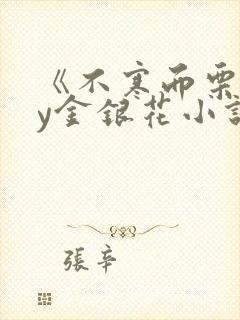 《不寒而栗
y金银花小說
張辛